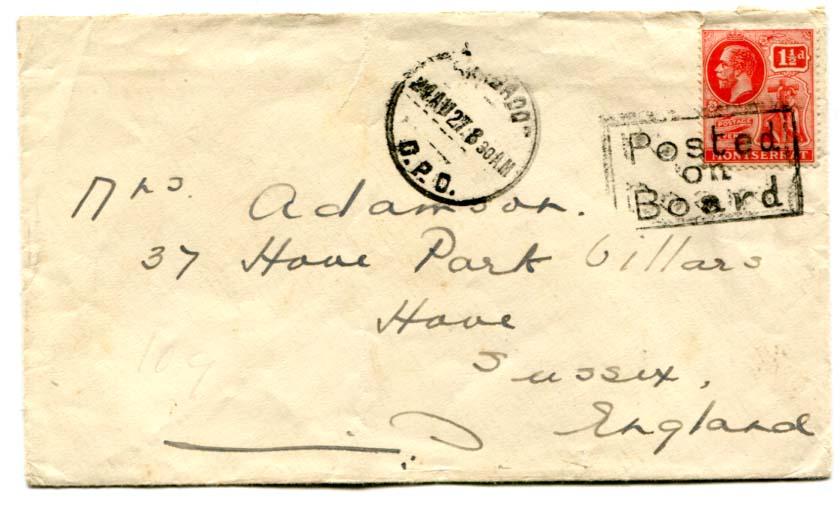 1½d
24AU27.8 30AM
G.P.O.
POSTAGE
MONTSERRAT
Posted
on
Board
Mrs. Adamson.
37 Hove Park Villars
Hove
Sussex,
England